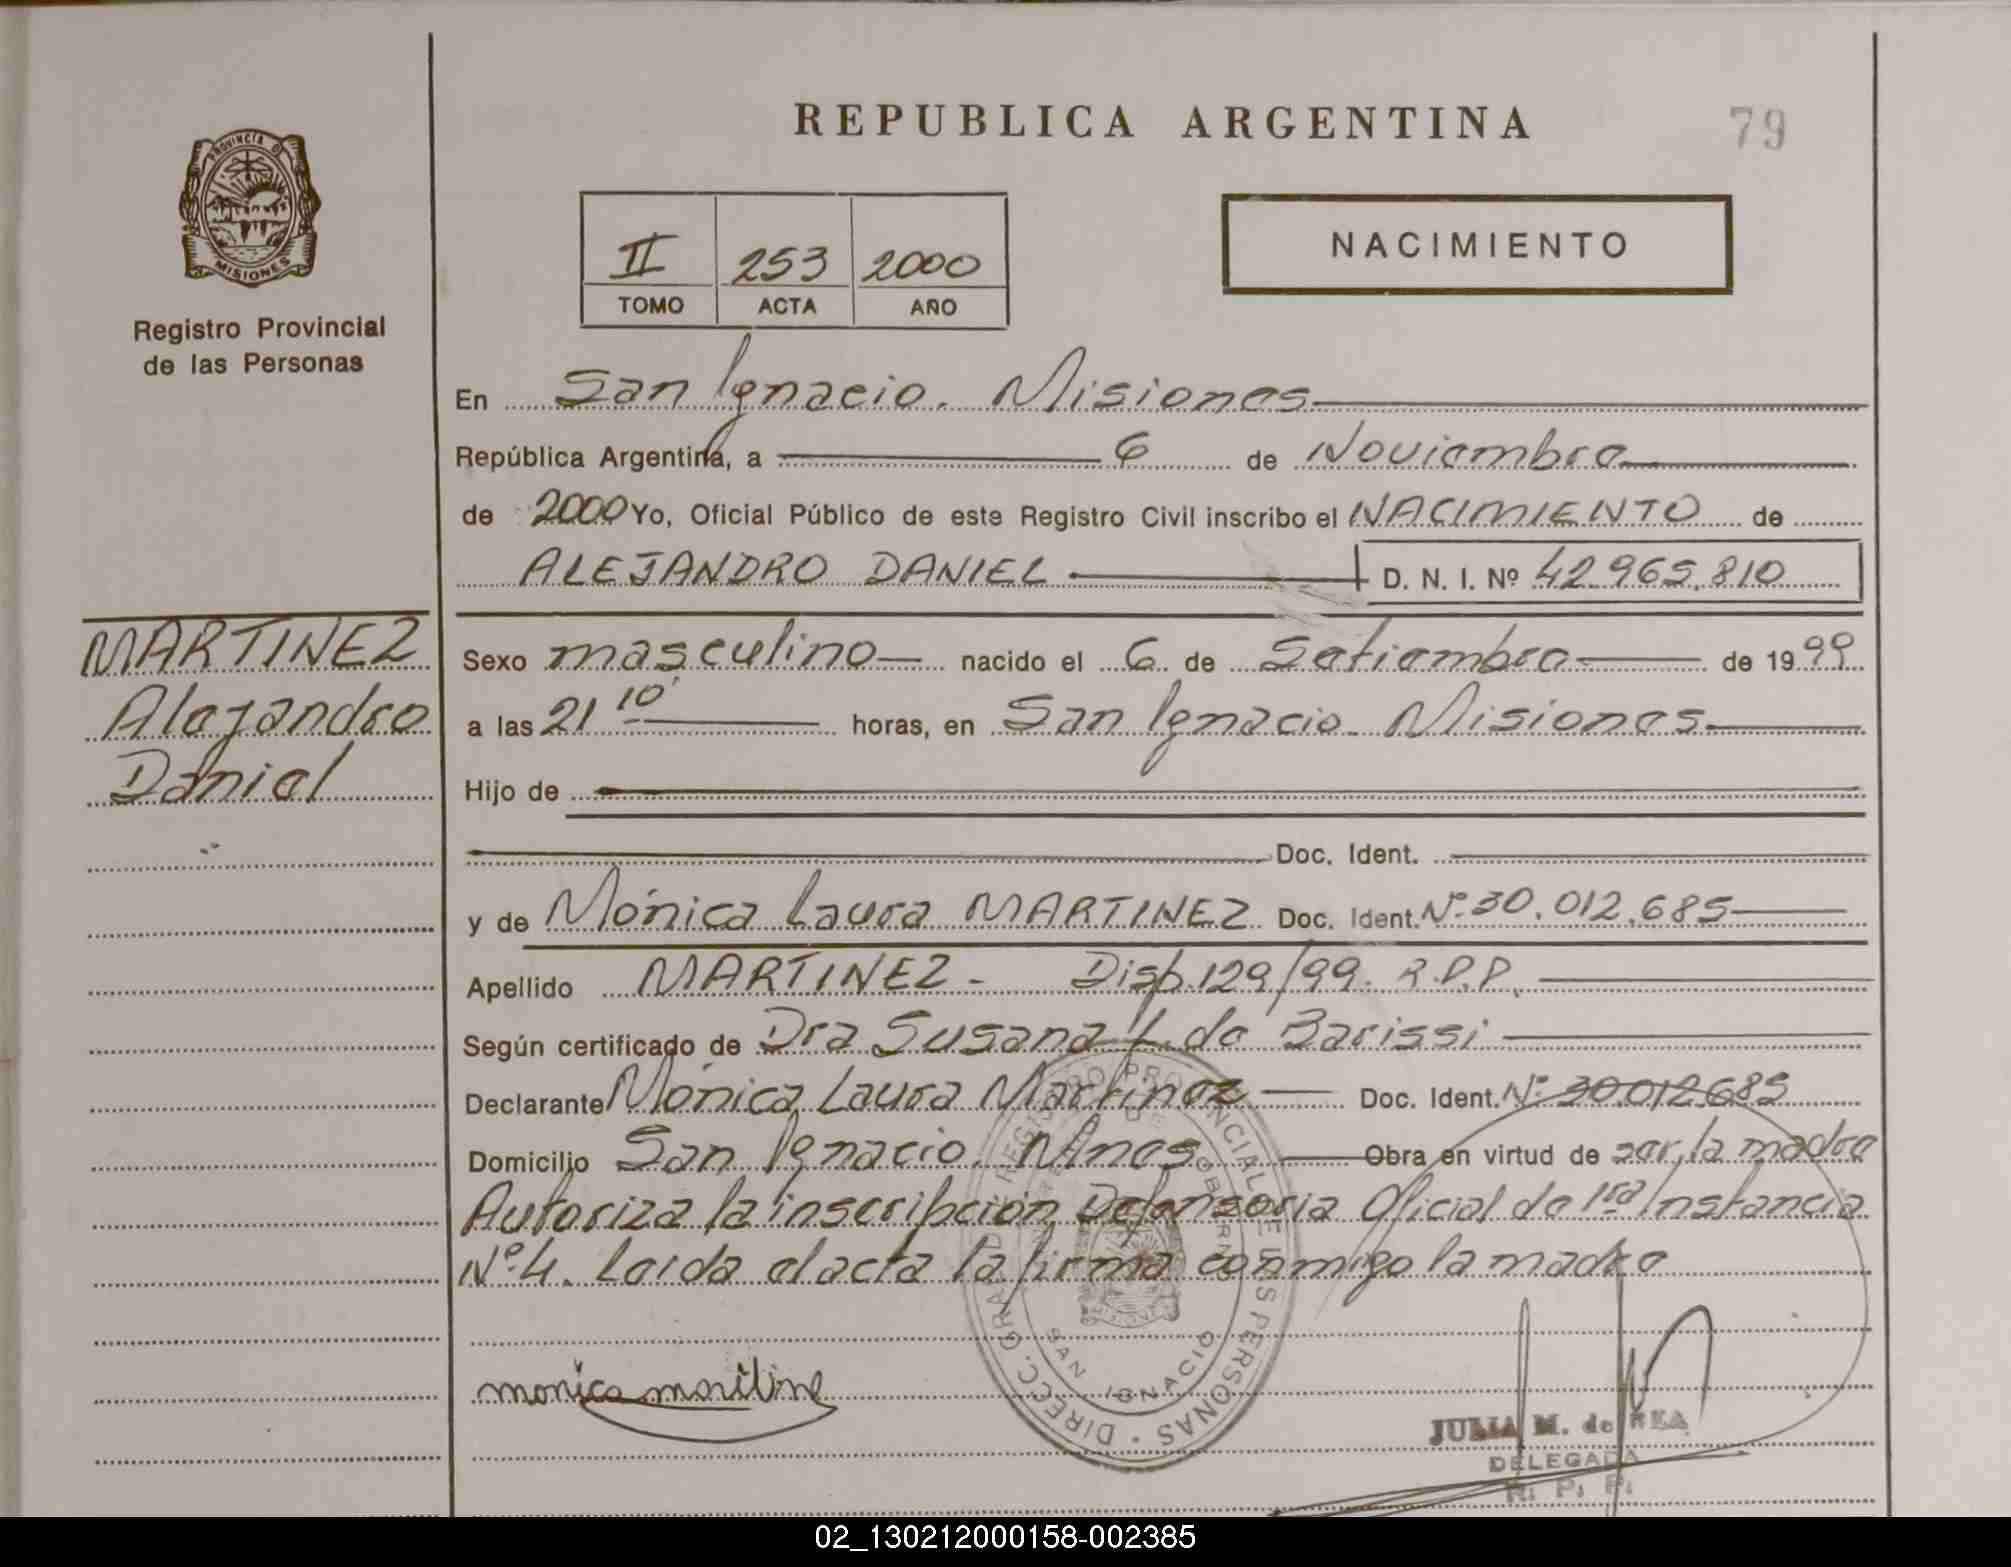 REPUBLICA ARGENTINA
79
PROVINCIA D
MISIONES
Registro Provincial
de las Personas
II 253 2000
TOMO ACTA AÑO
NACIMIENTO
En San Ignacio. Misiones
República Argentina, a 6 de Noviembre
de 2000 Yo, Oficial Público de este Registro Civil inscribo el NACIMIENTO de
ALEJANDRO DANIEL D. N. I. Nº 42.965.810
MARTINEZ
Alejandro
Daniel
Sexo masculino nacido el 6 de Setiembre de 1999
a las 21 10' horas, en San Ignacio. Misiones
Hijo de
Doc. Ident.
y de Mónica Laura MARTINEZ Doc. Ident. Nº 30.012.685
Apellido MARTINEZ - Disp. 129/99. R.P.P.
Según certificado de Dra Susana L. de Barissi
Declarante Mónica Laura Martinez Doc. Ident. Nº 30.012.685
Domicilio San Ignacio. Mnes Obra en virtud de ser la madre
Autoriza la inscripción Defensoria Oficial de 1ra Instancia
Nº 4. Leida el acta la firma conmigo la madre
DIRECC. GRAL. DE REGISTRO PROVINCIAL DE LAS PERSONAS
SAN IGNACIO
monica martine
JULIA M. de REA
DELEGADA
R. P. P.
02_130212000158-002385